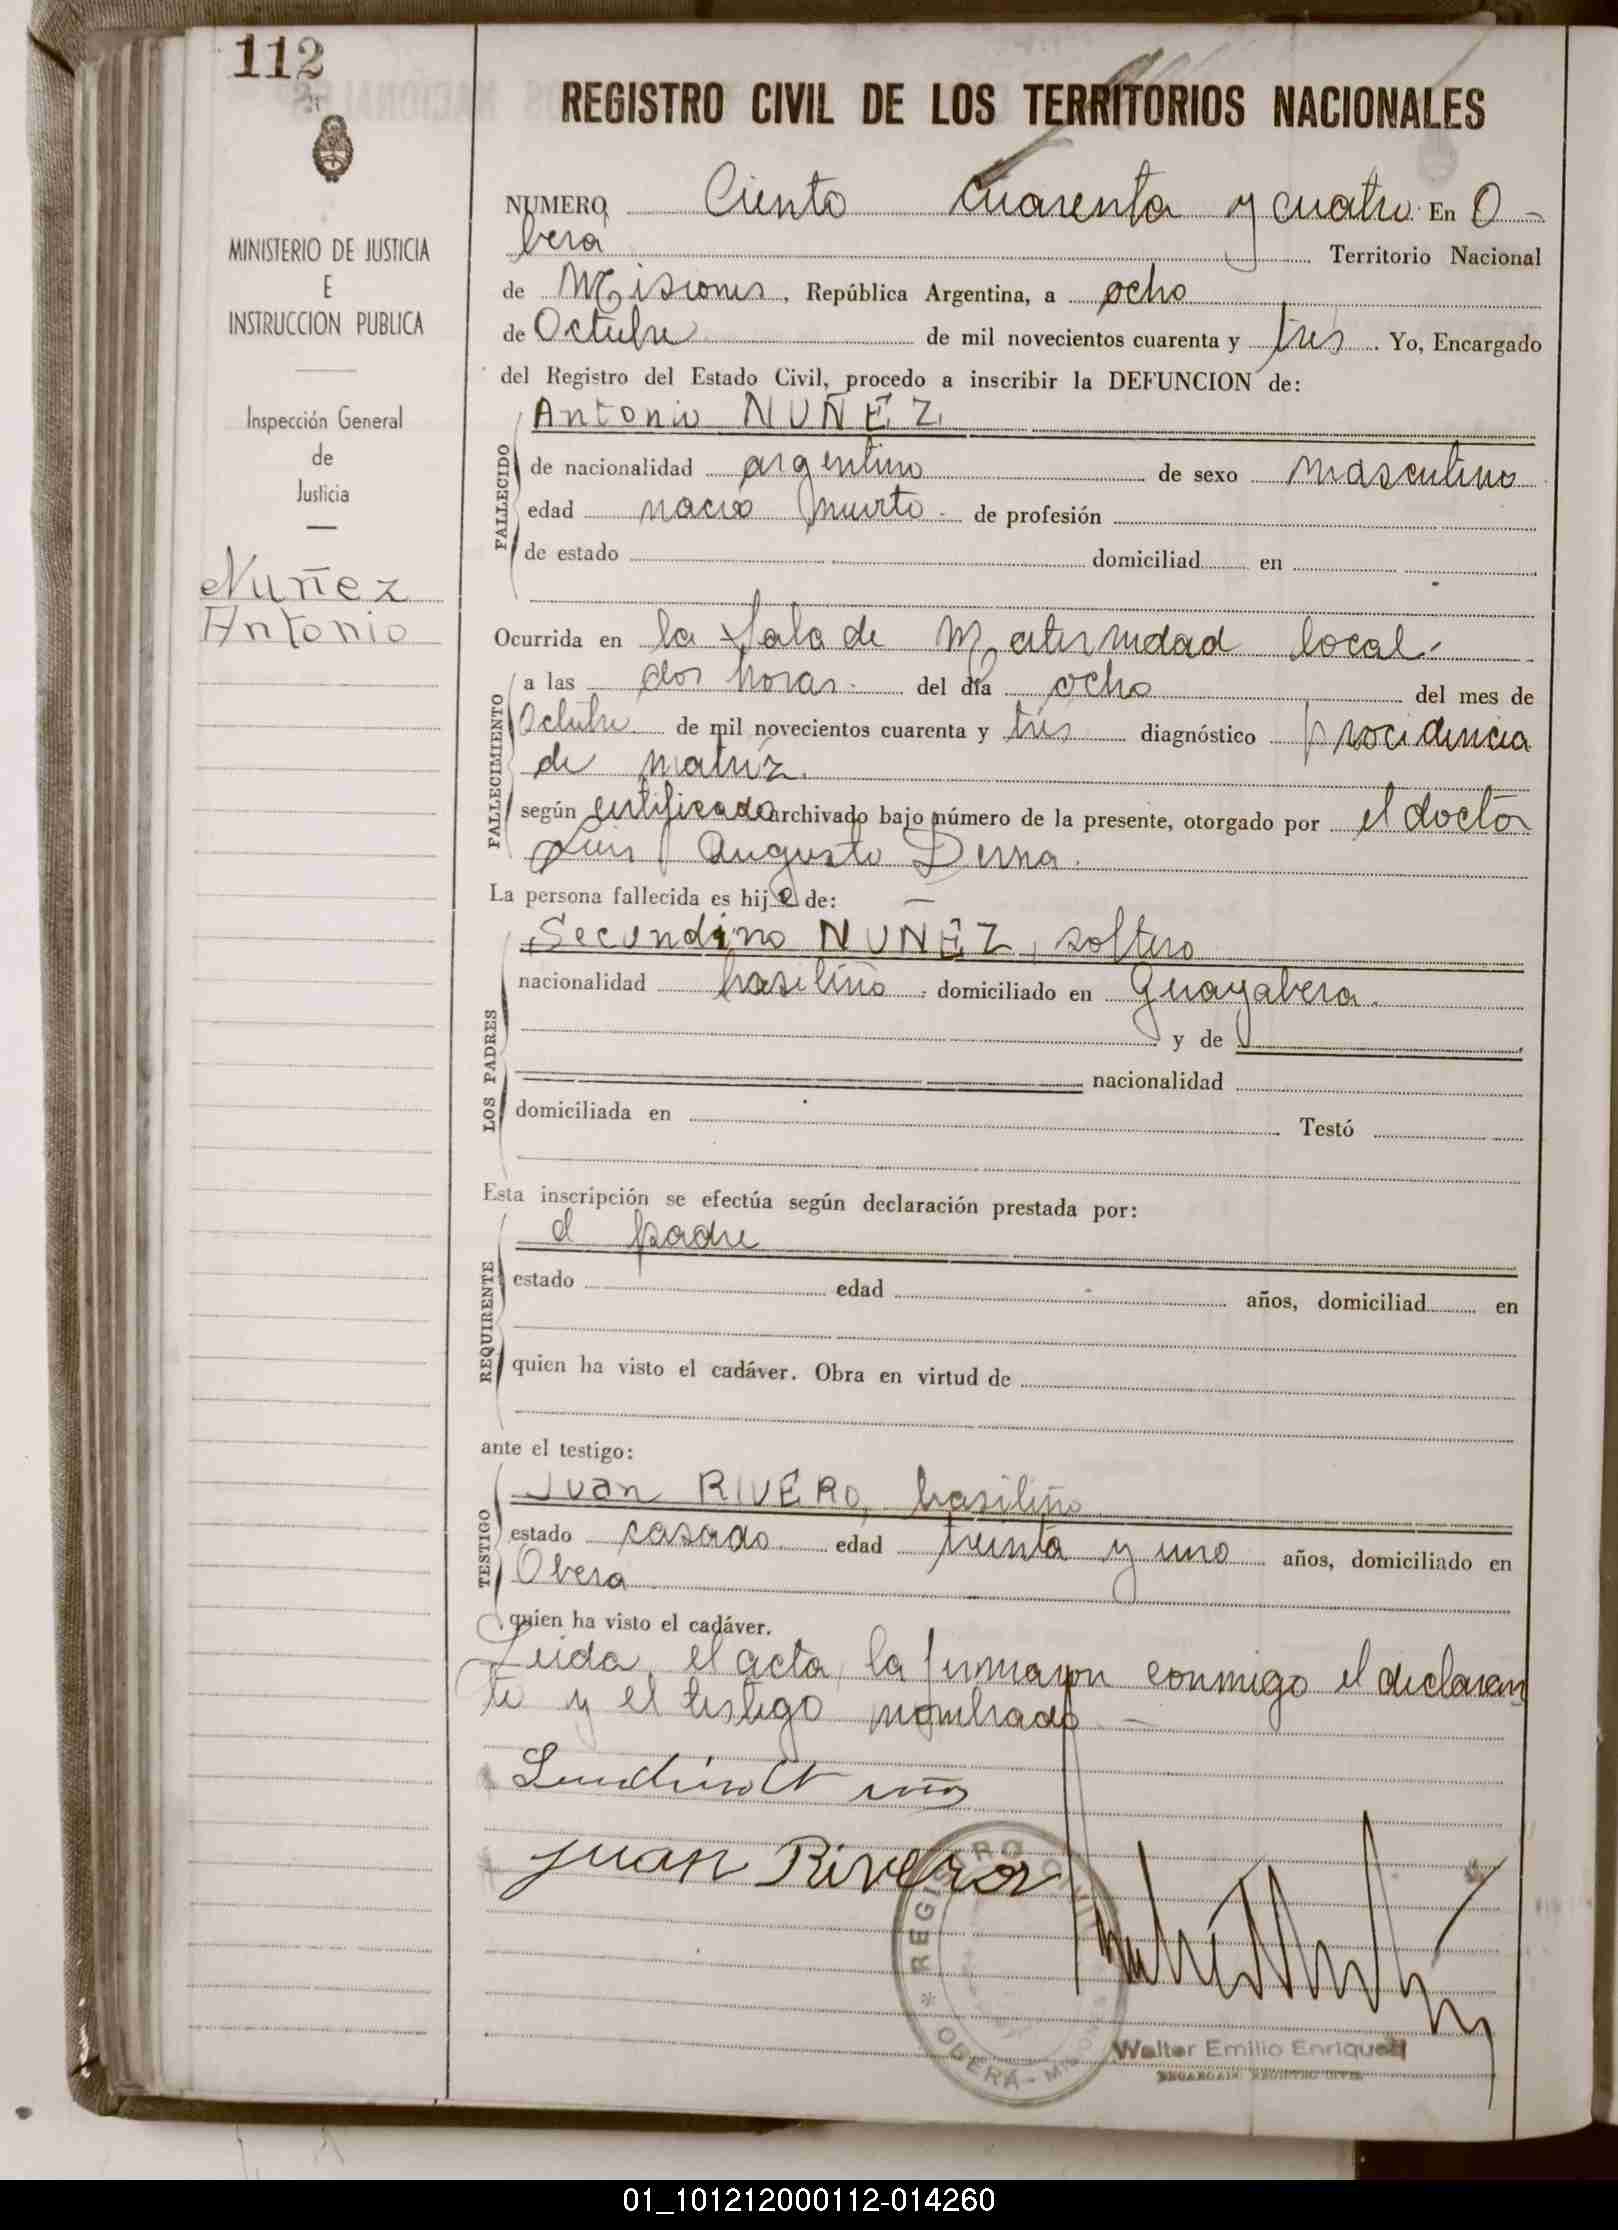 112
REGISTRO CIVIL DE LOS TERRITORIOS NACIONALES
MINISTERIO DE JUSTICIA
E
INSTRUCCION PUBLICA
Inspección General
de
Justicia
Nuñez
Antonio
NUMERO Ciento cuarenta y cuatro. En O-
bera Territorio Nacional
de Misiones, República Argentina, a ocho
de Octubre de mil novecientos cuarenta y tres. Yo, Encargado
del Registro del Estado Civil, procedo a inscribir la DEFUNCION de:
Antonio NUÑEZ
FALLECIDO
de nacionalidad argentino de sexo masculino
edad nacio muerto. de profesión
de estado domiciliad en
Ocurrida en la Sala de Maternidad local.
FALLECIMIENTO
a las dos horas. del día ocho del mes de
Octubre de mil novecientos cuarenta y tres diagnóstico procidencia
de matriz.
según certificado archivado bajo número de la presente, otorgado por el doctor
Luis Augusto Derna.
La persona fallecida es hijo de:
LOS PADRES
Secundino NUÑEZ, soltero
nacionalidad brasileño. domiciliado en Guayabera.
y de
nacionalidad
domiciliada en Testó
Esta inscripción se efectúa según declaración prestada por:
REQUIRENTE
el padre
estado edad años, domiciliad en
quien ha visto el cadáver. Obra en virtud de
ante el testigo:
TESTIGO
Juan RIVERO, brasileño
estado casado edad treinta y uno años, domiciliado en
Obera
quien ha visto el cadáver.
Leida el acta, la firmaron conmigo el declaran
te y el testigo nombrado -
Juan Rivero
REGISTRO CIVIL
* OBERA - MISIONES
Walter Emilio Enriquez
ENCARGADO REGISTRO CIVIL
01_101212000112-014260